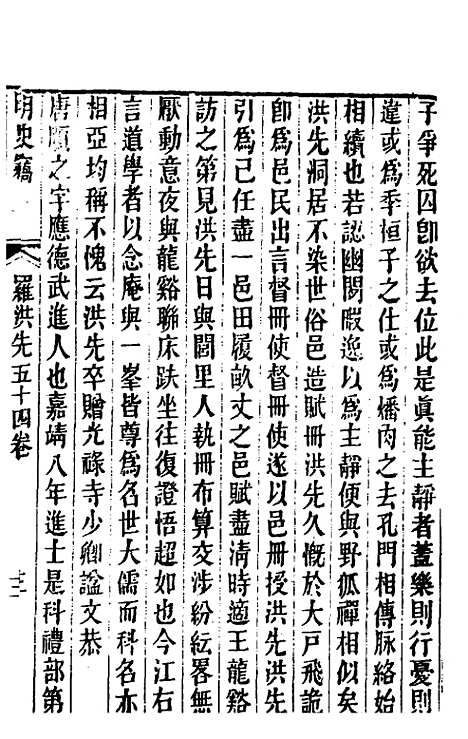 子爭死囚卽欲去位此是眞能主靜者蓋樂則行憂則
違或爲季恒子之仕或爲燔肉之去孔門相傳脉絡始
相續也若認幽閴暇逸以爲主靜便與野狐禪相似矣
洪先洞居不染世俗邑造賦冊洪先久慨於大戸飛詭
卽爲邑民出言督冊使督冊使遂以邑冊授洪先洪先
引爲己任盡一邑田履畝丈之邑賦盡淸時適王龍谿
訪之第見洪先日與閭里人執冊布算交涉紛紜畧無
厭動意夜與龍谿聯床趺坐往復證悟超如也今江右
言道學者以念庵與一峯皆尊爲名世大儒而科名亦
相亞均稱不愧云洪先卒贈光祿寺少卿諡文恭
唐順之字應德武進人也嘉靖八年進士是科禮部第
明史竊
羅洪先五十四卷
十二